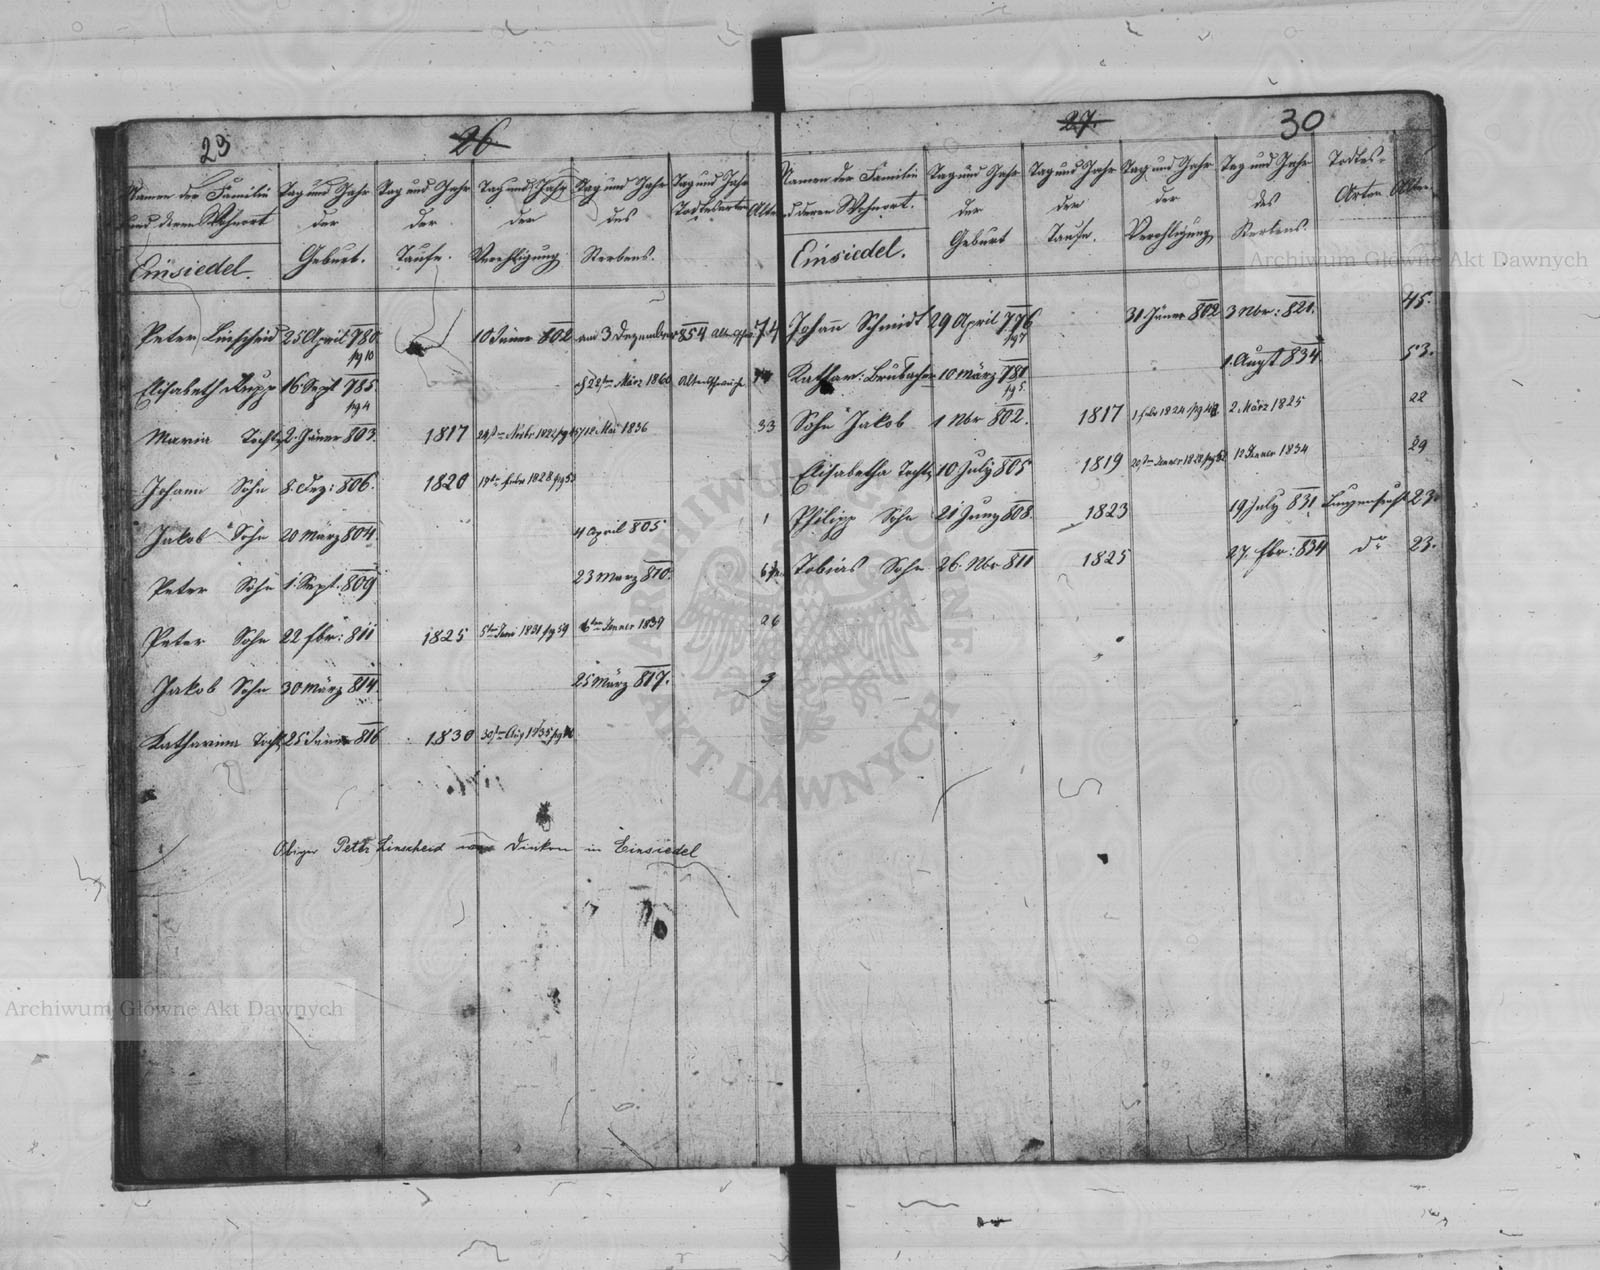 29
26
Namen der Familie Tag und Jahr Tag und Jahr Tag und Jahr Tag und Jahr Tag und Jahr
und deren Wohnort der der der des Todtesarten Alter
Einsiedel. Geburt. Taufe. Verehligung Sterbens.
Peter Linscheid 25 April 780 10 Jäner 802 am 3 Dezember 854 74
pg 10
Elisabeth Rupp 16 Sept 785 22ten März 1860 Altersschwäche
pg 4
Maria Tocht 2. Jäner 803 1817 12 Mai 1836 33
Johann Sohn 8. Dez: 806. 1820 Febr 1828 pg 53
Jakob Sohn 20 März 804 4 April 805 1
Peter Sohn 1. Sept. 809 23 März 810.
Peter Sohn 22 Fbr: 811 1825 5ten Juni 1831 pg 59 6ten Jenner 1839 26
Jakob Sohn 30 März 814. 25 März 817. 3
Katharina Tocht 25 Jäner 816 1830 30ten Aug 1835
Obiger Peter Linscheid war Diakon in Einsiedel
27.
30
Namen der Familie Tag und Jahr Tag und Jahr Tag und Jahr Tag und Jahr Todtes-
und deren Wohnort. der der der des Arten Alter
Einsiedel. Geburt Taufe. Verehligung Sterbens.
Johann Schmidt 29 April 776 31 Jäner 802 3 Nbr: 821. 45.
pg 7
Kathar: Brubacher 10 März 781 1. Augst 834 53.
pg 5
Sohn Jakob 1 Nbr 802. 1817 1 Febr 1824 2 März 1825 22
Elisabetha Tocht 10 July 805 1819 12 Jenner 1834 29
Philipp Sohn 21 Juny 808. 1823 19 July 831 Lungensucht 23.
Tobias Sohn 26. Nbr 811 1825 27. Fbr: 834 do 23.
Archiwum Główne Akt Dawnych
Archiwum Główne Akt Dawnych
ARCHIWUM GŁÓWNE AKT DAWNYCH